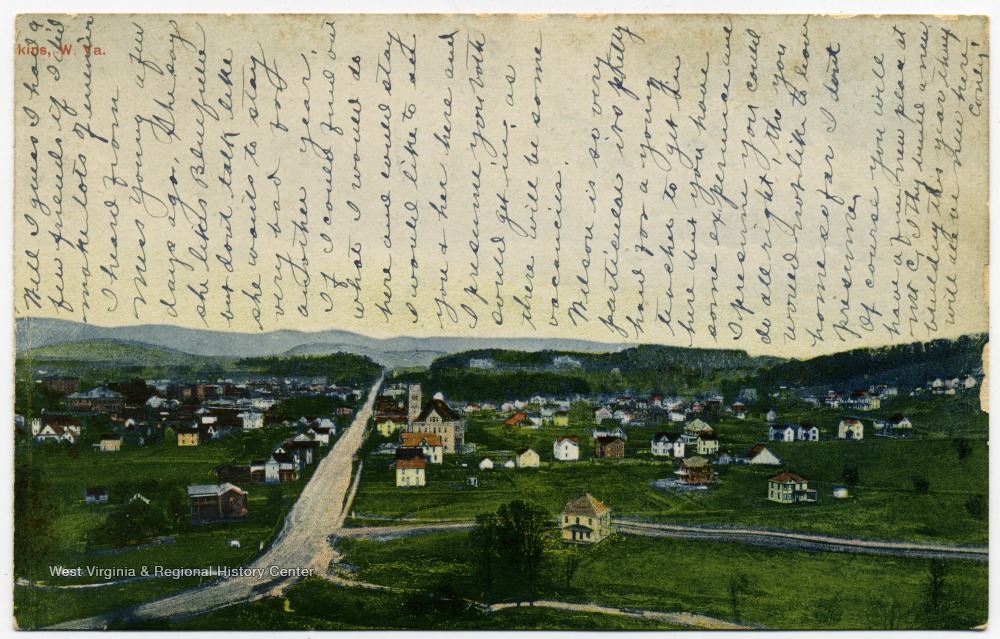 kins, W. Va.
Well I guess I had a
few friends if I did
make lots of enemies
I heard from
Miss Young a few
days ago, She says
she likes Bluefield
but dont talk like
she wants to stay
very bad for
another year.
If I could find out
what I would do
here and would stay
I would like to see
you & her here and
I presume you both
could get in as
there will be some
vacancies.
Nelson is so very
particular its pretty
hard for a young
teacher to get in
here but you have
some experience and
I presume you could
do all right, tho you
would not like to leave
home so far I dont
presume,
Of course you will
have a fine new place at
most I they build a new
building this year they
will have a new there.
Conly.
West Virginia & Regional History Center